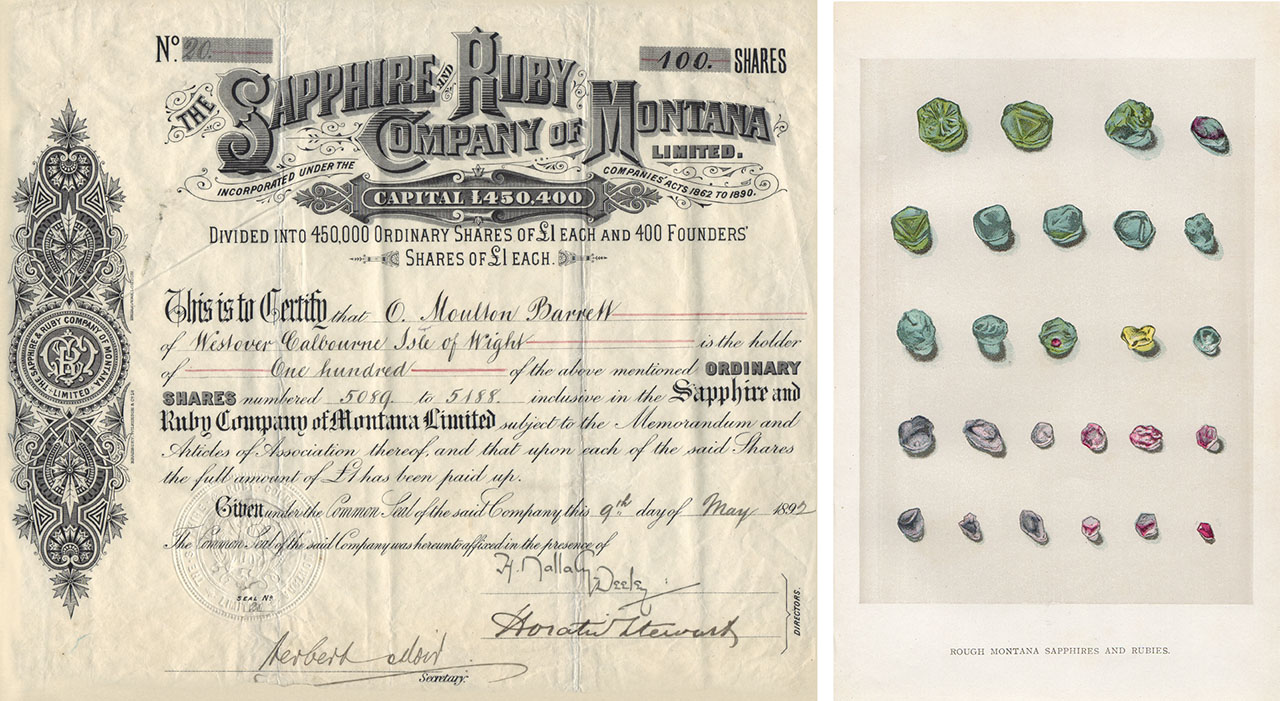 No. 20. 100. SHARES
THE SAPPHIRE AND RUBY
COMPANY OF MONTANA
LIMITED.
INCORPORATED UNDER THE COMPANIES' ACTS 1862 TO 1890.
CAPITAL £450,400
DIVIDED INTO 450,000 ORDINARY SHARES OF £1 EACH AND 400 FOUNDERS'
SHARES OF £1 EACH.
This is to Certify that O. Moulton Barrett
of Westover Calbourne Isle of Wight is the holder
of One hundred of the above mentioned ORDINARY
SHARES numbered 5089 to 5188 inclusive in the Sapphire and
Ruby Company of Montana Limited subject to the Memorandum and
Articles of Association thereof, and that upon each of the said Shares
the full amount of £1 has been paid up.
Given under the Common Seal of the said Company this 9th day of May 1892
The Common Seal of the said Company was hereunto affixed in the presence of
SEAL No.
Horatio Stewart
DIRECTORS.
Herbert Moir
Secretary.
THE SAPPHIRE & RUBY COMPANY OF MONTANA LIMITED
ROUGH MONTANA SAPPHIRES AND RUBIES.